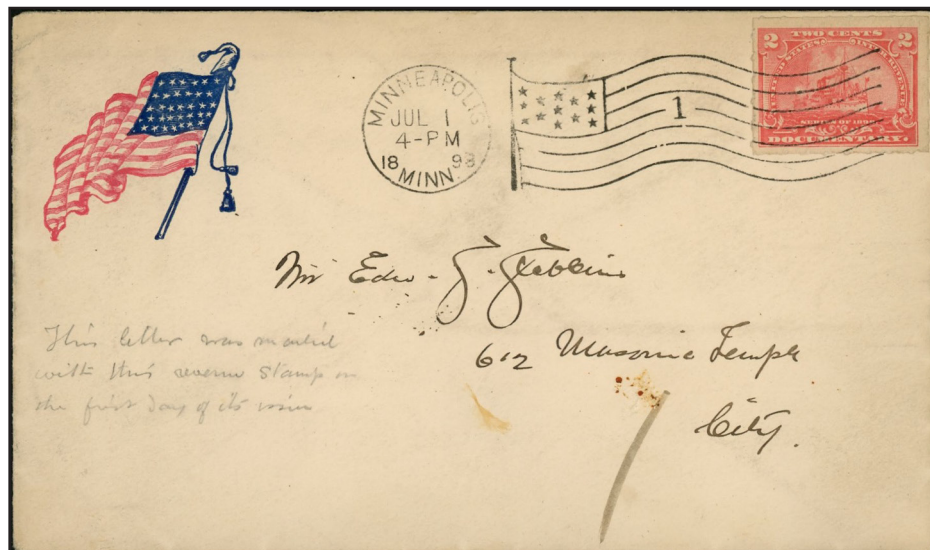 MINNEAPOLIS
JUL 1
4-PM
18 98
MINN.
1
2 TWO CENTS 2
UNITED STATES INTER. REVENUE
SERIES OF 1898
DOCUMENTARY.
Mr Edw. G. Stebbins
612 Masonic Temple
City.
This letter was mailed
with this revenue stamp on
the first day of its issue